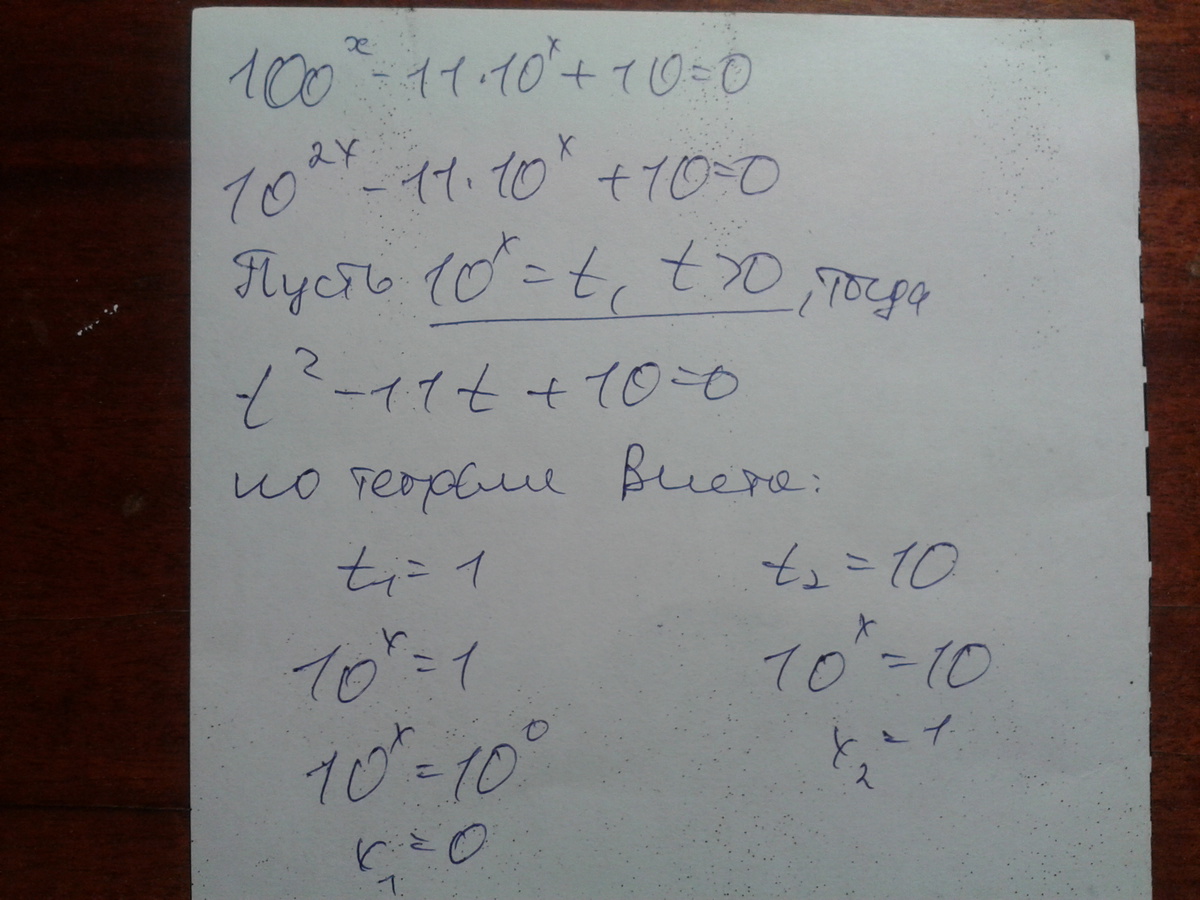 100^x - 11·10^x + 10 = 0
10^2x - 11·10^x + 10 = 0
Пусть 10^x = t, t > 0, тогда
t² - 11t + 10 = 0
по теореме Виета:
t₁ = 1 t₂ = 10
10^x = 1 10^x = 10
10^x = 10^0 x₂ = 1
x₁ = 0